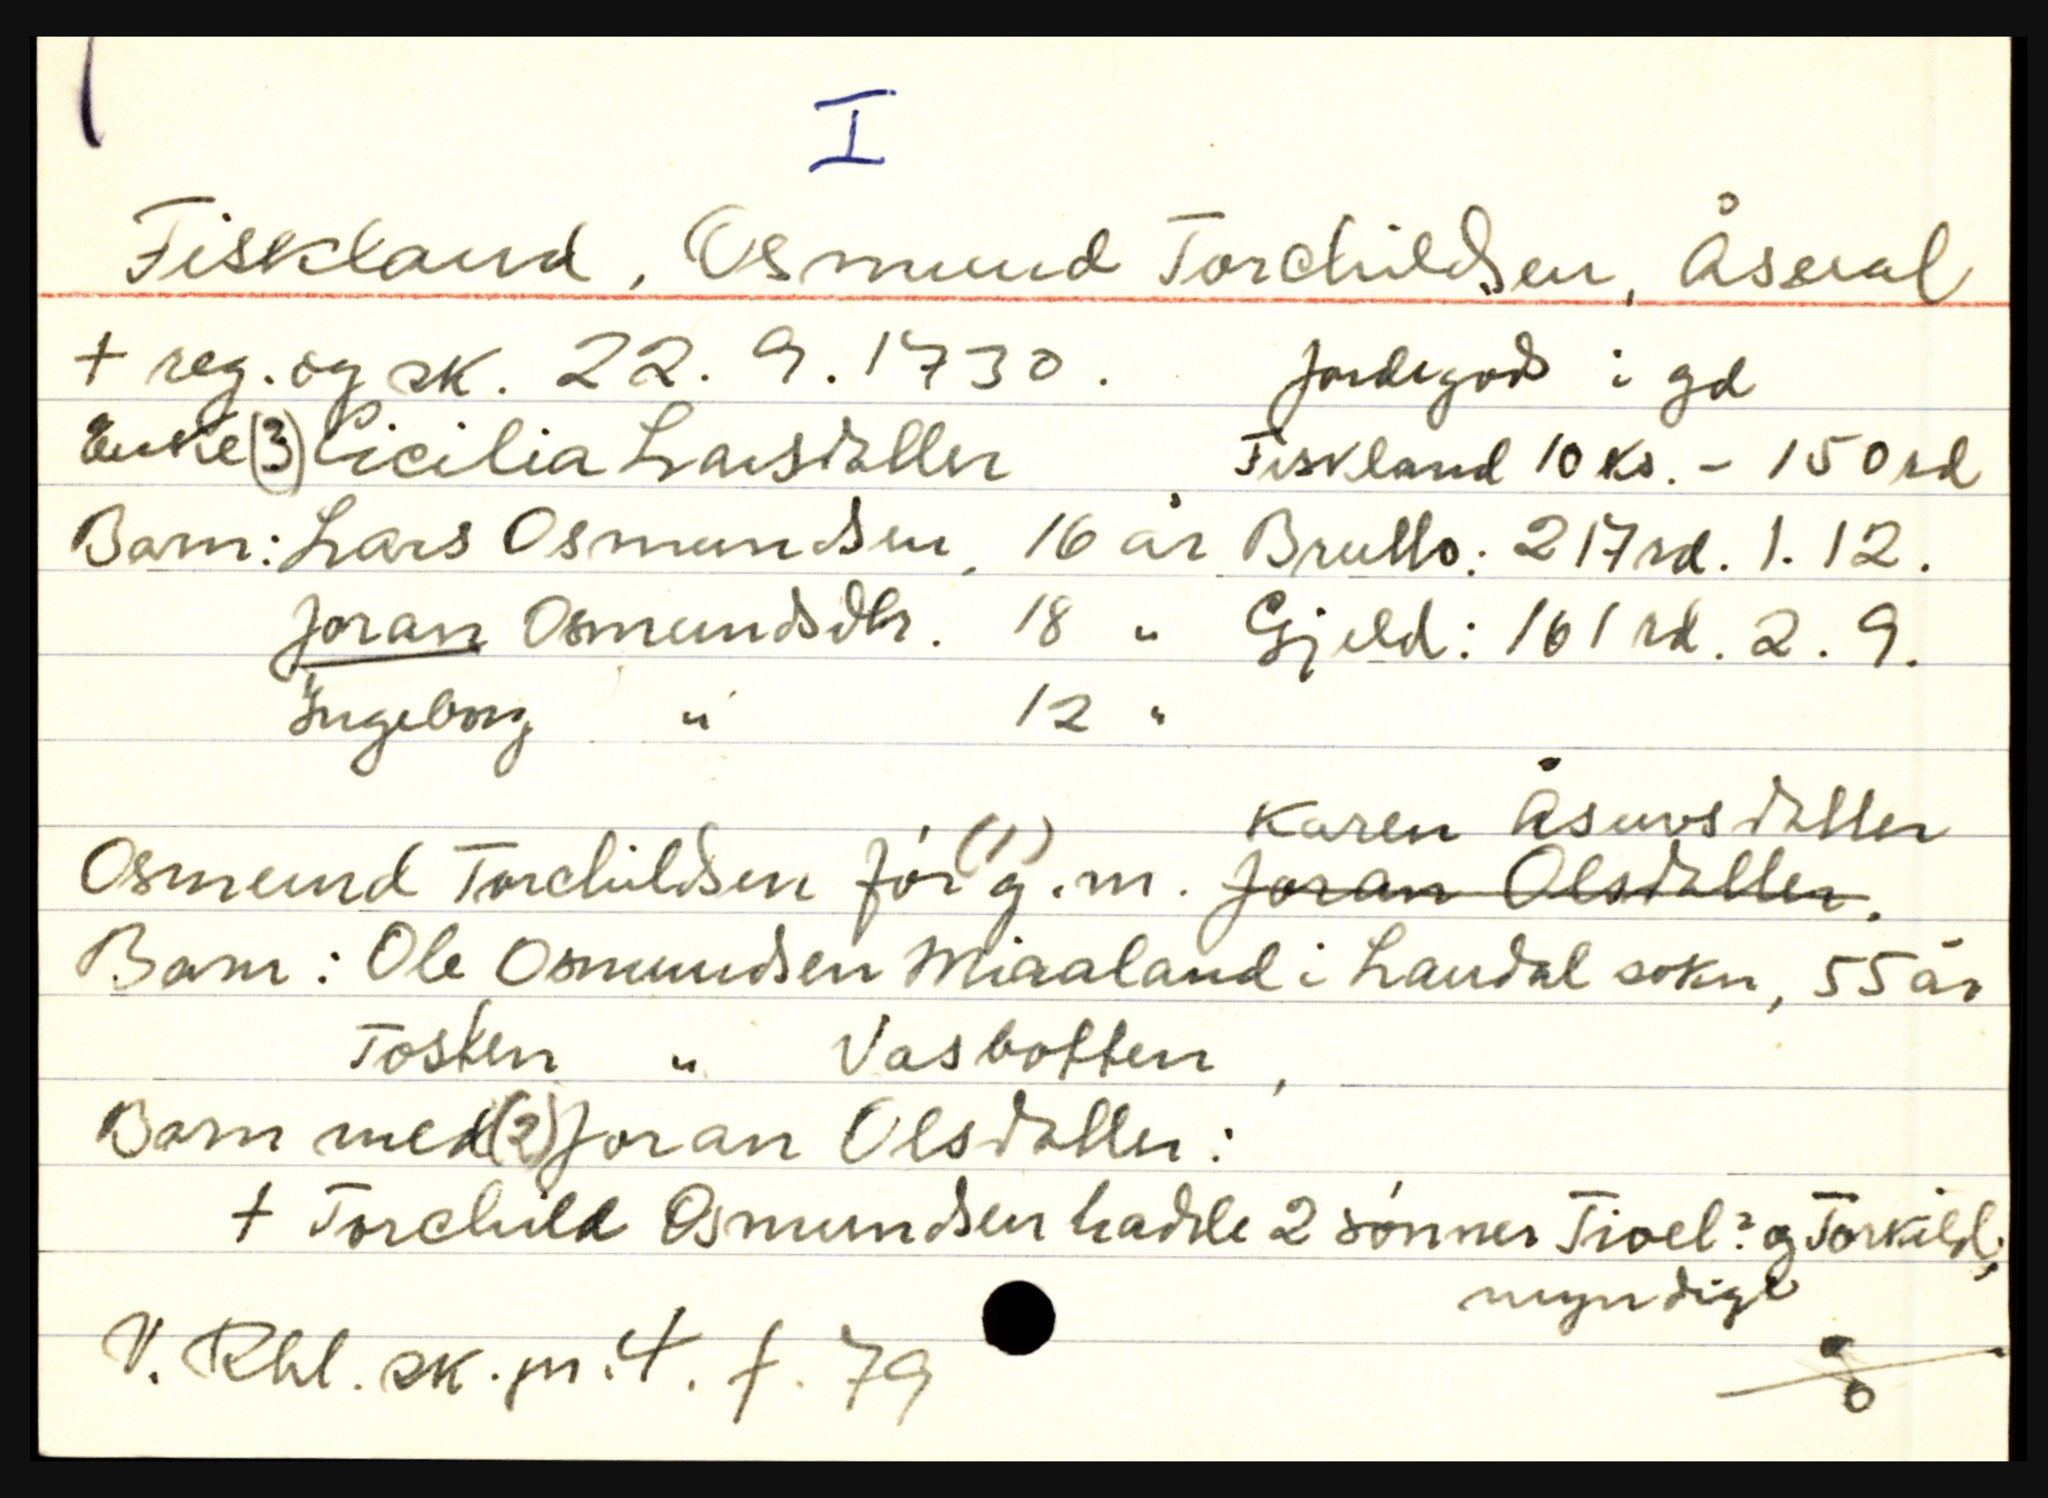 I
Fiskland, Osmund Torchildsen, Åseral
+ reg. og sk. 22. 9. 1730. Jordegods i gd
Enke (3) Cicilia Larsdatter Fiskland 10 ks. - 150 rd
Barn: Lars Osmundsen, 16 år Brutto: 217 rd. 1. 12.
Joran Osmundsdtr. 18 " Gjeld: 161 rd. 2. 9.
Ingeborg " 12 "
Karen Åsuvsdatter
Osmund Torchildsen før (1) g. m. Joran Olsdatter.
Barn: Ole Osmundsen Miaaland i Laudal sokn, 55 år
Tosten " Vasbotten,
Barn med (2) Joran Olsdatter:
+ Torchild Osmundsen hadde 2 sønner Tioel? og Torkild,
myndige
V. Rbl. sk. pr. 4. f. 79